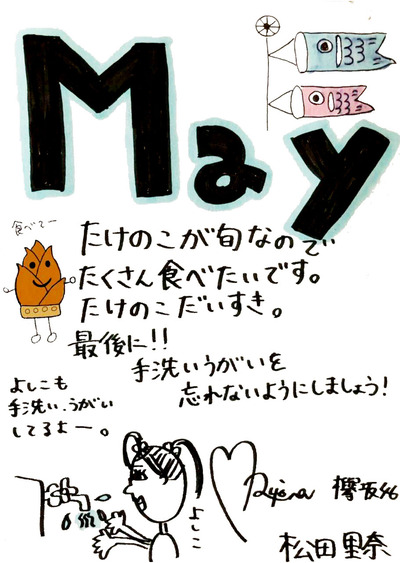 May
食べてー
たけのこが旬なので
たくさん食べたいです。
たけのこだいすき。
最後に!!
手洗いうがいを
忘れないようにしましょう!
よしこも
手洗い、うがい
してるよー。
よしこ
欅坂46
松田里奈